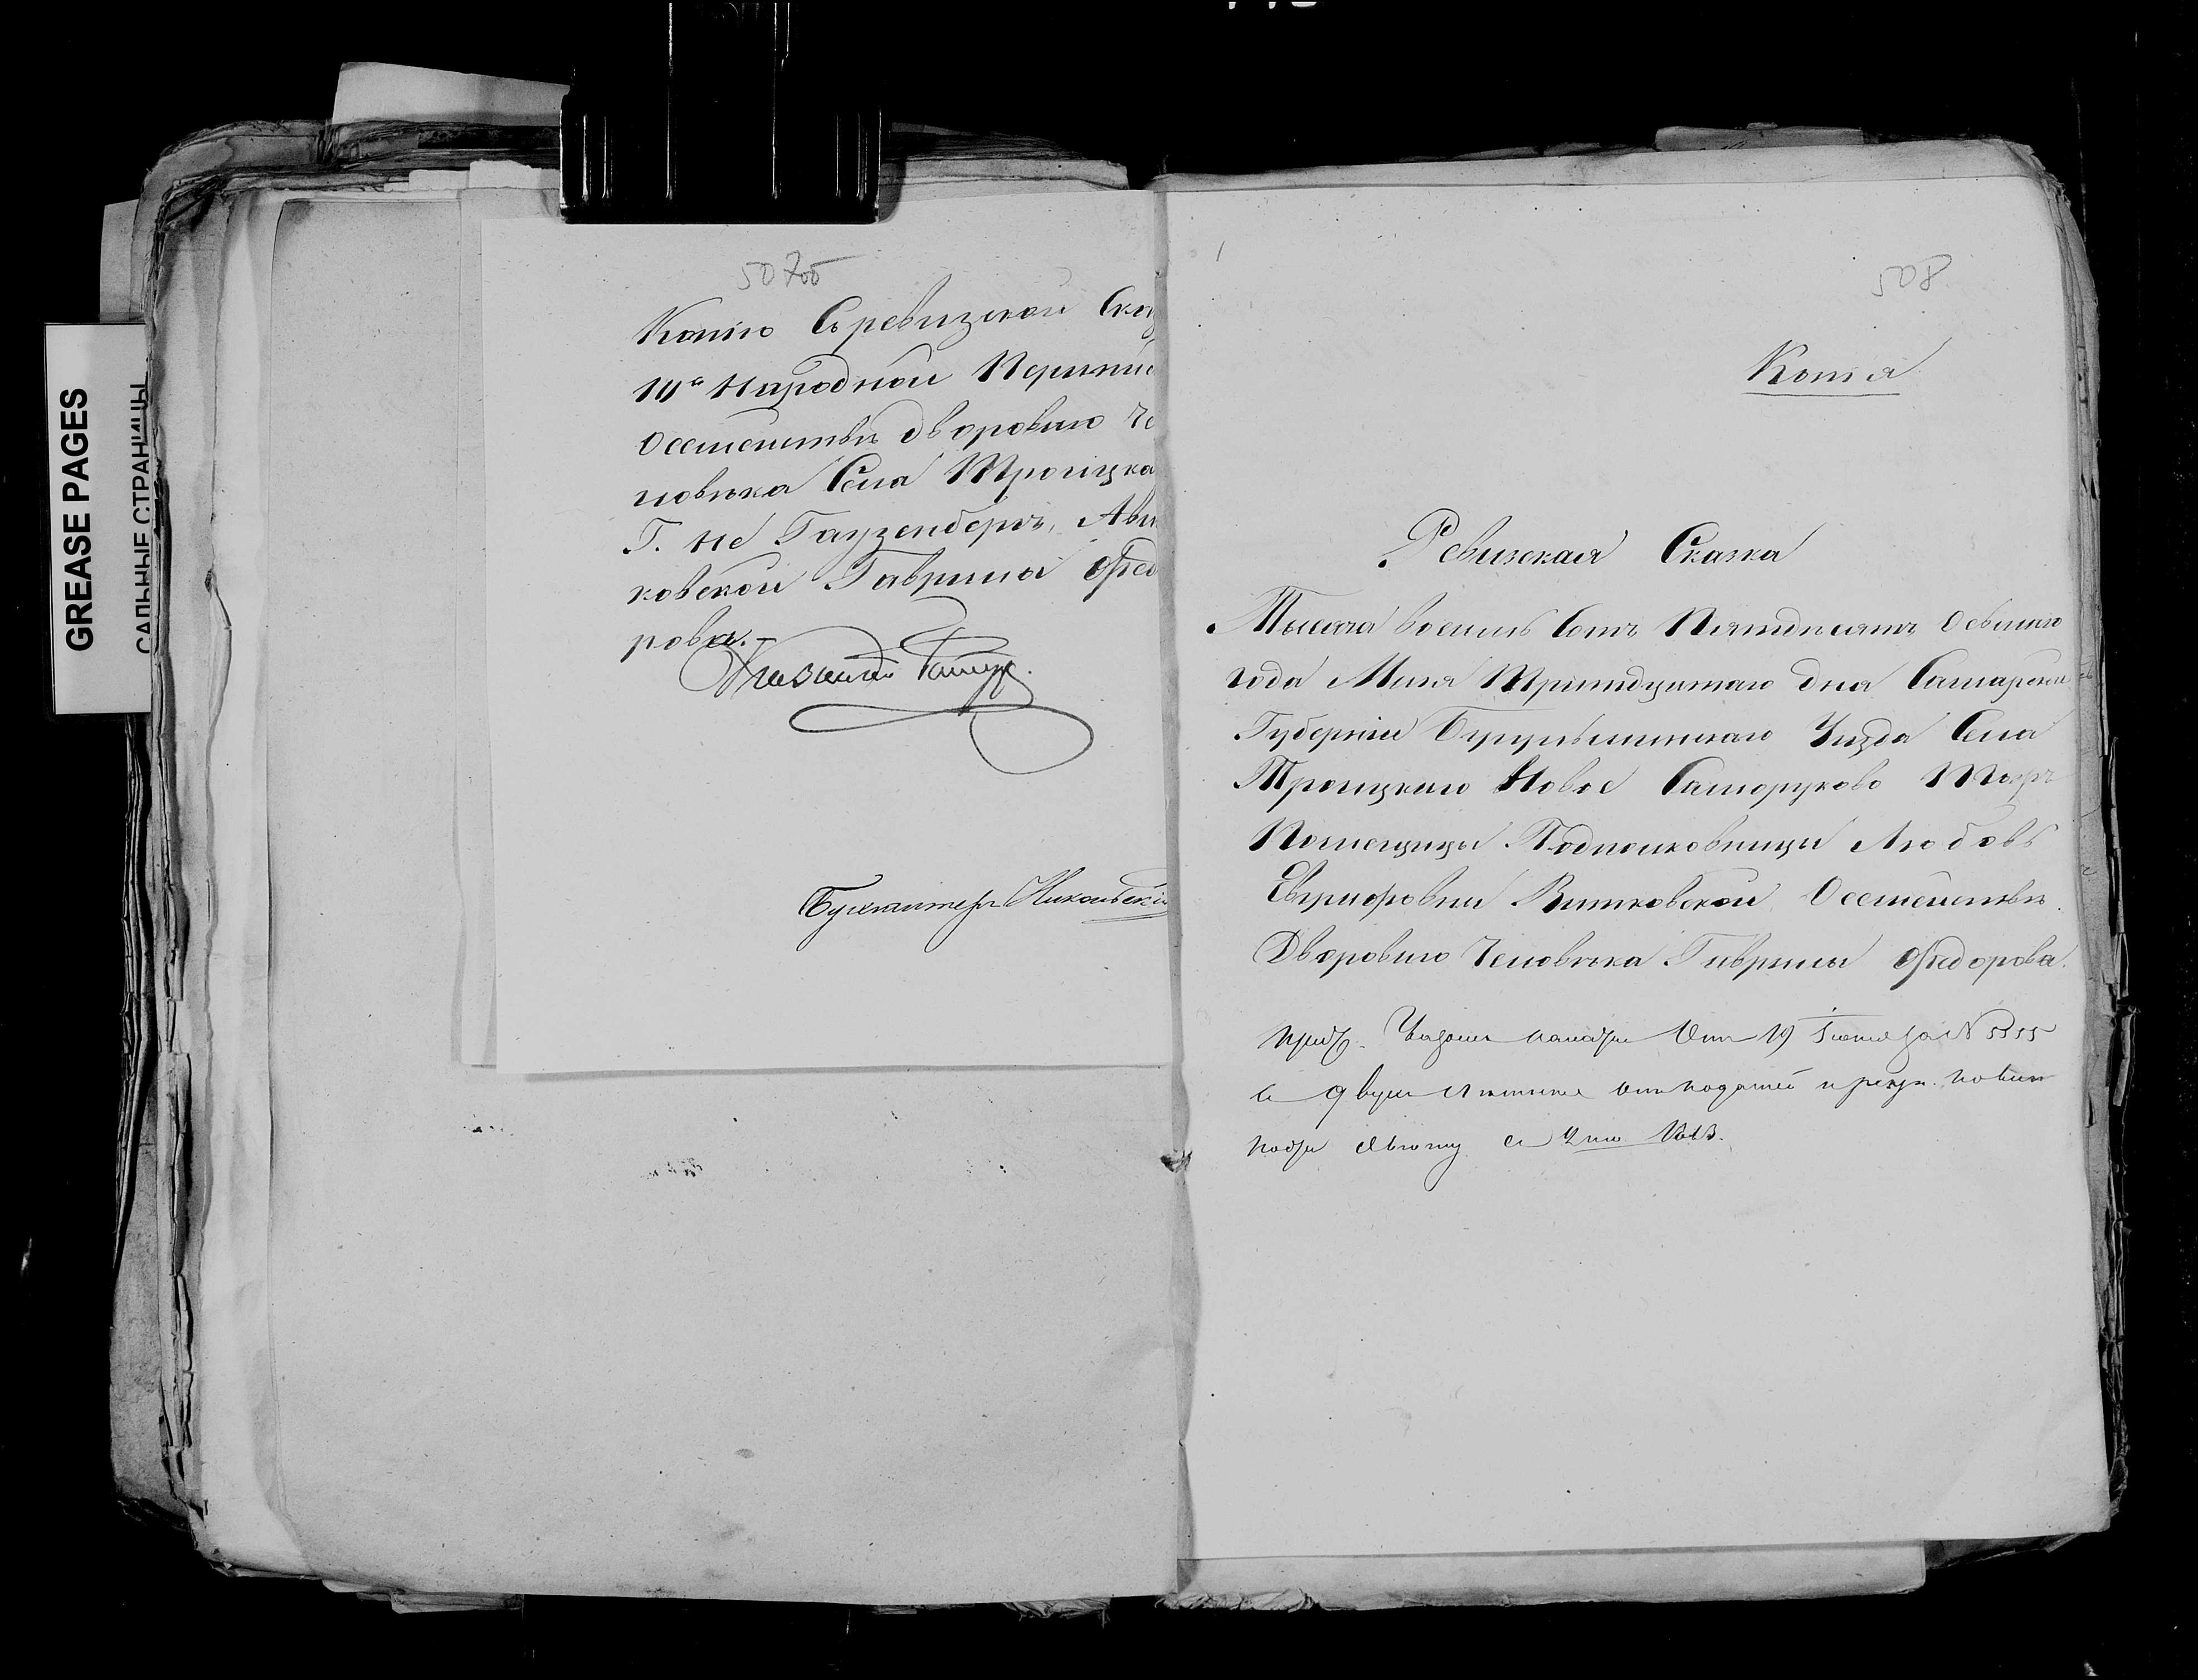 GREASE PAGES
САЛЬНЫЕ СТРАНИЦЫ
507об
Копію Съ ревизской Ска
10й Народной Переписи
О семействѣ двороваго Че
ловѣка Села Троицка
Г. не Гаузенберг, Ави
ковской Гаврила Ѳедо
рова.-
Бухгалтеръ Никольскій
508
Копія
Ревизская Сказка
Тысяча восемь Сотъ Пятдесятъ Осьмаго
года Мая Тритдцатаго дня Самарской
Губерніи Бугульминскаго Уѣзда Села
Троицкаго Новое Саморуково Тожъ
Помещицы Подполковницы Любовь
Евграфовны Витковской О семействѣ
Двороваго Человѣка Гаврилы Ѳедорова.
Указомъ палаты Отъ 19 Сентября № 5355
отъ податей и рекр. повин